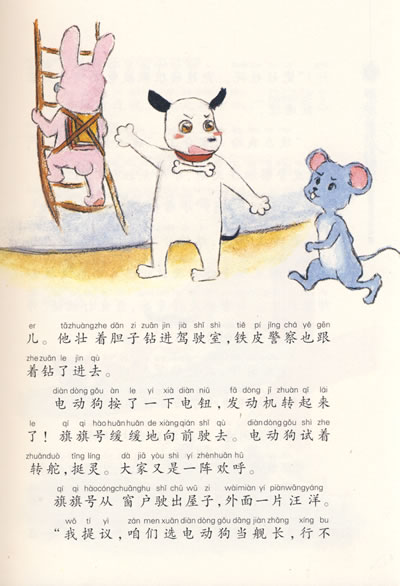 er tāzhuàngzhe dǎn zi zuān jìn jià shǐ shì tiě pí jǐng chá yě gēn
儿。他壮着胆子钻进驾驶室，铁皮警察也跟
zhe zuān le jìn qù
着钻了进去。
diàn dòng gǒu àn le yí xià diàn niǔ fā dòng jī zhuàn qǐ lái
电动狗按了一下电钮，发动机转起来
le qí qí hào huǎn huǎn de xiàng qián shǐ qù diàn dòng gǒu shì zhe
了！旗旗号缓缓地向前驶去。电动狗试着
zhuǎn duò tǐng líng dà jiā yòu shì yí zhèn huān hū
转舵，挺灵。大家又是一阵欢呼。
qí qí hào cóng chuāng hu shǐ chū wū zi wài miàn yí piàn wāng yáng
旗旗号从窗户驶出屋子，外面一片汪洋。
wǒ tí yì zán men xuǎn diàn dòng gǒu dāng jiàn zhǎng xíng bu
“我提议，咱们选电动狗当舰长，行不